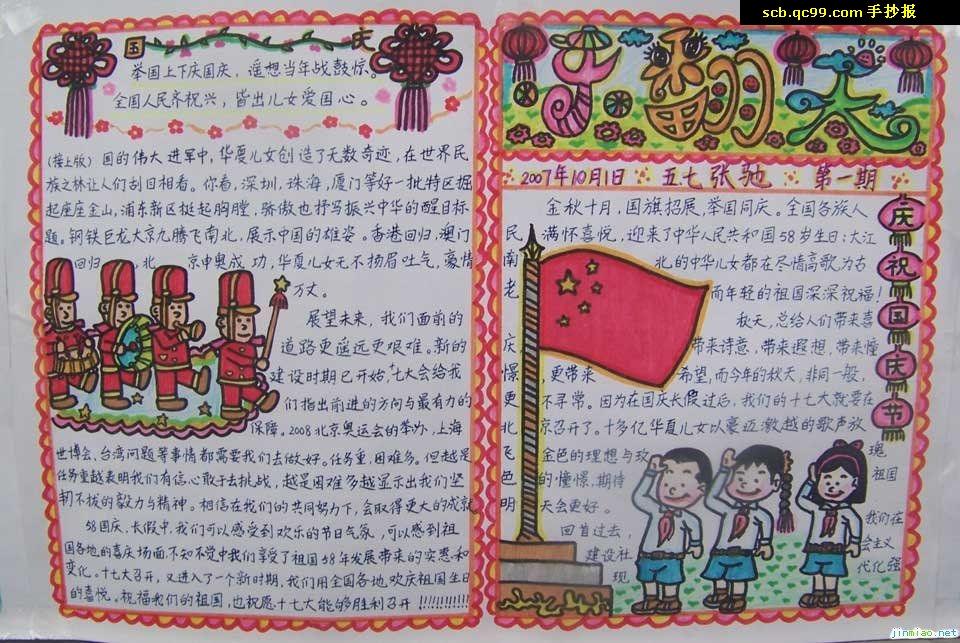 scb.qc99.com 手抄报
国 庆
举国上下庆国庆，遥想当年战鼓惊。
全国人民齐祝兴，皆出儿女爱国心。
(接上版) 国的伟大进军中，华夏儿女创造了无数奇迹，在世界民
族之林让人们刮目相看。你看，深圳，珠海，厦门等好一批特区掘
起座座金山，浦东新区挺起胸膛，骄傲也抒写振兴中华的醒目标
题。钢铁巨龙大京九腾飞南北，展示中国的雄姿。香港回归，澳门
回归，北京申奥成功，华夏儿女无不扬眉吐气，豪情
万丈。
展望未来，我们面前的
道路更遥远更艰难。新的
建设时期已开始，十七大会给我
们指出前进的方向与最有力的
保障。2008北京奥运会的举办，上海
世博会，台湾问题等事情都需要我们去做好。任务重，困难多。但越是
任务重越表明我们有信心敢于去挑战，越是困难多越显示出我们坚
韧不拔的毅力与精神。相信在我们的共同努力下，会取得更大的成就
58国庆，长假中，我们可以感受到欢乐的节日气氛，可以感到祖
国各地的喜庆场面，不知不觉中我们享受了祖国58年发展带来的实惠和
变化。十七大召开，又进入了一个新时期，我们用全国各地欢庆祖国生日
的喜悦。祝福我们的祖国，也祝愿十七大能够胜利召开！！！！！！！！！！
手翻天
2007年10月1日 五七张驰 第一期
庆祝国庆节
金秋十月，国旗招展，举国同庆。全国各族人
民 满怀喜悦，迎来了中华人民共和国58岁生日：大江
南 北的中华儿女都在尽情高歌，为古
老 而年轻的祖国深深祝福！
秋天，总给人们带来喜
庆 带来诗意，带来遐想，带来憧
憬，更带来 希望，而今年的秋天，非同一般，
更 不寻常。因为在国庆长假过后，我们的十七大就要在
北 京召开了。十多亿华夏儿女以豪迈激越的歌声放
飞 金色的理想与玫 瑰
色 的憧憬，期待 祖国
明 天会更好。
回首过去， 我们在
建设社 会主义
现 代化强
jinmiao.net